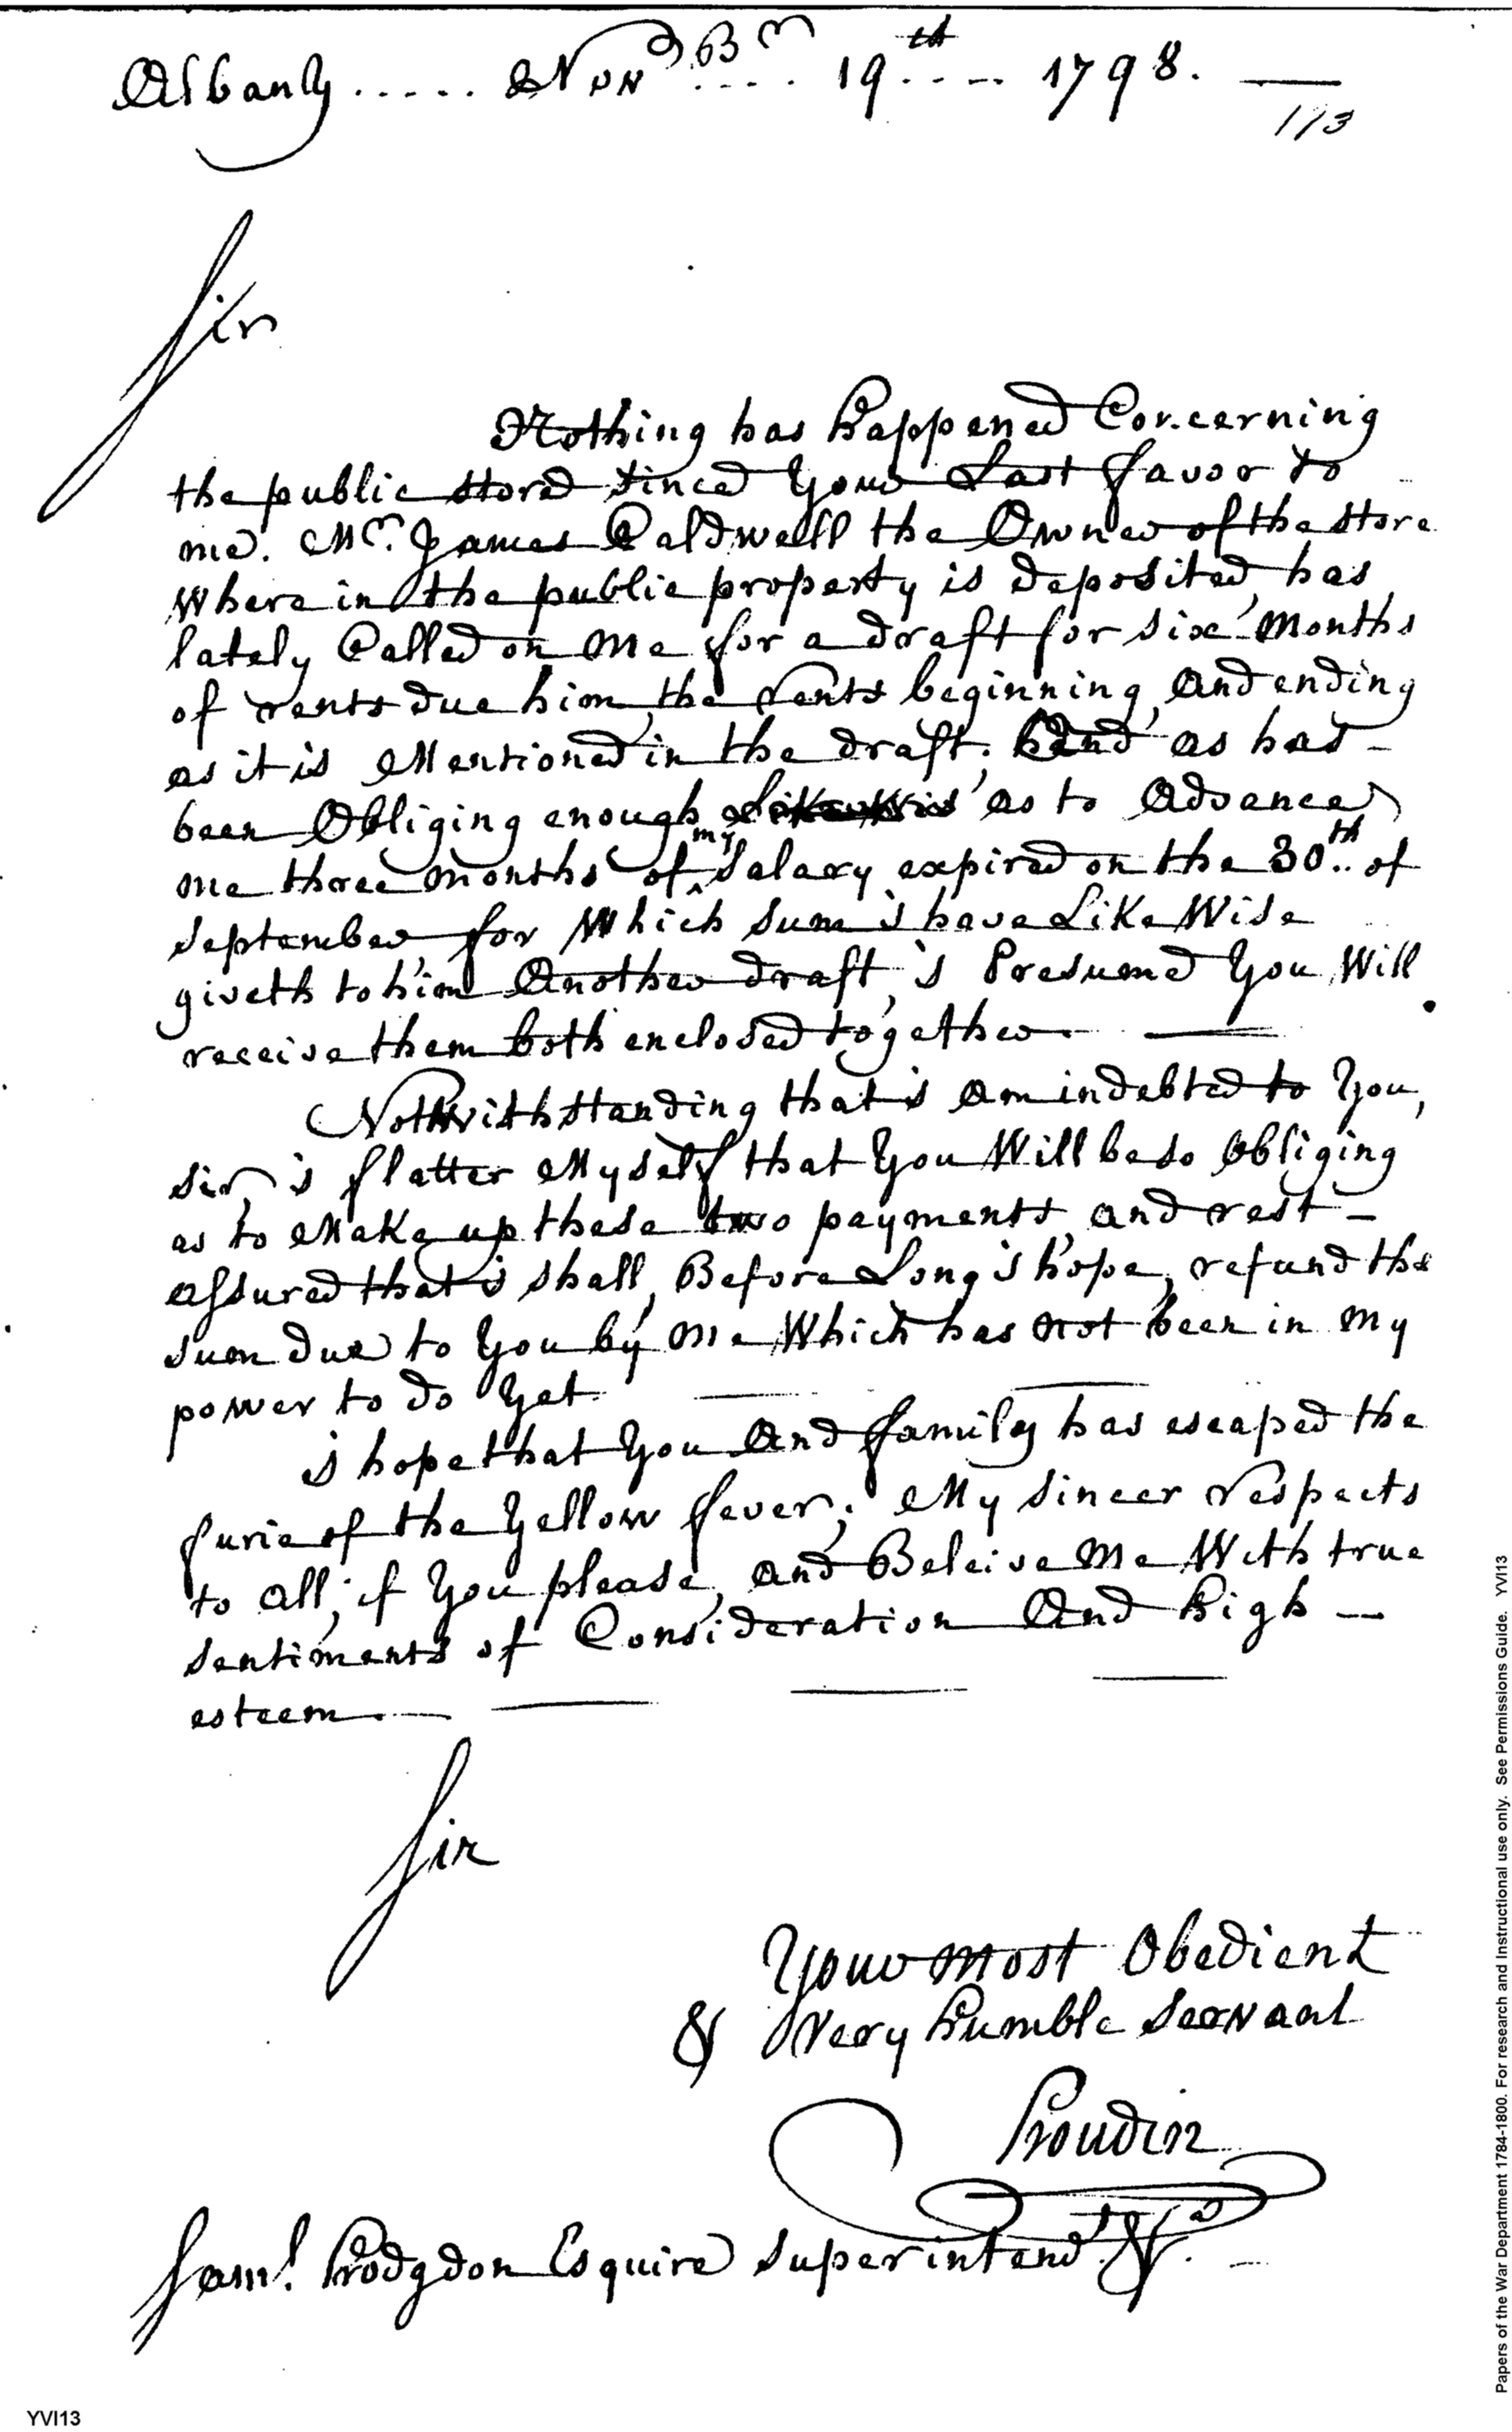 Albany ..... Nov^b^e^r .... 19th .... 1798. —
113
Sir
Nothing has happened Concerning
the public store since Your Last favor to
me. Mr. James Caldwell the Owner of the store
Where in the public property is deposited, has
lately Called on Me for a draft for six Months
of rents due him, the rents beginning, And ending
as it is Mentioned in the draft; And as has -
been Obliging enough Likewis as to Advance
me three months of my salary expired on the 30th.. of
september for Which sum i have LikeWise
giveth to him Another draft, i Presumed You Will
receive them both enclosed together. —
Nothwithstanding that i Am indebted to You,
sir, i flatter Myself that You Will be so Obliging
as to Make up these two payments, and rest -
assured that i shall, Before Long i hope, refund the
sum due to You by Me Which has not been in My
power to do Yet. — —
i hope that You And family has escaped the
furie of the Yellow fever; My sincer respects
to all, if You please, and Beleive Me With true
sentiments of Consideration And high —
esteem. — — — —
Sir
Your most Obedient
& Very humble Servant
houdin
Saml. hodgdon Esquire superintendt &c. —
Papers of the War Department 1784-1800. For research and Instructional use only. See Permissions Guide. YVI13
YVI13